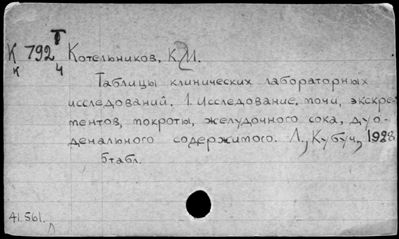 Т
К 792 Котельников, К.И.
к ч
Таблицы клинических лабораторных
исследований. 1. Исследование мочи, экскре-
ментов, мокроты, желудочного сока, дуо-
денального содержимого. Л., Кубуч, 1928.
6табл.
41.561.